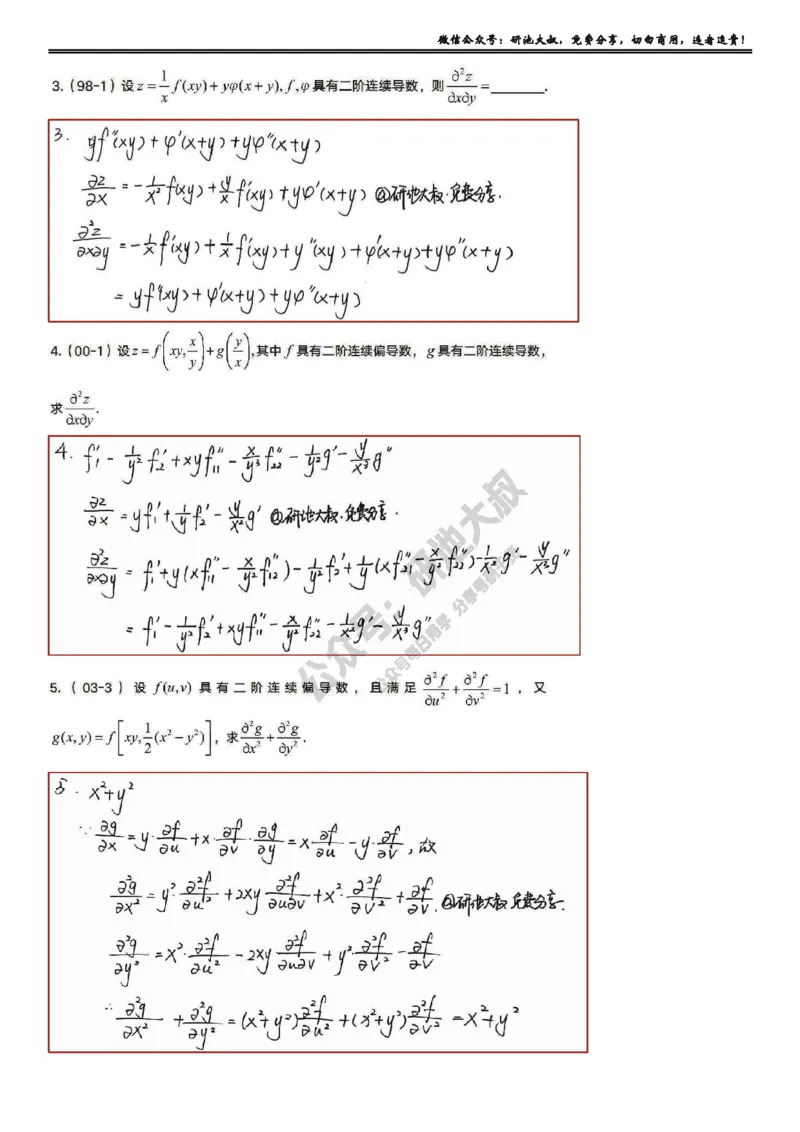 微信公众号：研池大叔，免费分享，切勿商用，违者追责！
3.（98-1）设 z = \frac{1}{x} f(xy) + yφ(x+y), f, φ 具有二阶连续导数，则 \frac{∂²z}{∂x∂y} = ______.
3. yf''(xy) + φ'(x+y) + yφ''(x+y)
\frac{∂z}{∂x} = -\frac{1}{x²}f(xy) + \frac{y}{x}f'(xy) + yφ'(x+y) @研池大叔·免费分享.
\frac{∂²z}{∂x∂y} = -\frac{1}{x}f'(xy) + \frac{1}{x}f'(xy) + y''(xy) + φ'(x+y) + yφ''(x+y)
= yf''(xy) + φ'(x+y) + yφ''(x+y)
4.（00-1）设 z = f(xy, \frac{x}{y}) + g(\frac{y}{x}), 其中 f 具有二阶连续偏导数，g 具有二阶连续导数，
求 \frac{∂²z}{∂x∂y}.
4. f₁' - \frac{1}{y²}f₂' + xyf₁₁'' - \frac{x}{y³}f₂₂'' - \frac{1}{y²}g' - \frac{y}{x³}g''
\frac{∂z}{∂x} = yf₁' + \frac{1}{y}f₂' - \frac{y}{x²}g' @研池大叔·免费分享.
\frac{∂²z}{∂x∂y} = f₁' + y(xf₁₁'' - \frac{x}{y²}f₁₂'') - \frac{1}{y²}f₂' + \frac{1}{y}(xf₂₁'' - \frac{x}{y²}f₂₂'') - \frac{1}{x²}g' - \frac{y}{x³}g''
= f₁' - \frac{1}{y²}f₂' + xyf₁₁'' - \frac{x}{y²}f₂₂'' - \frac{1}{x²}g' - \frac{y}{x³}g''
公众号：研池大叔
5.（03-3）设 f(u,v) 具有二阶连续偏导数，且满足 \frac{∂²f}{∂u²} + \frac{∂²f}{∂v²} = 1，又
g(x,y) = f[xy, \frac{1}{2}(x²-y²)]，求 \frac{∂²g}{∂x²} + \frac{∂²g}{∂y²}.
5. x²+y²
∵ \frac{∂g}{∂x} = y·\frac{∂f}{∂u} + x·\frac{∂f}{∂v} · \frac{∂g}{∂y} = x·\frac{∂f}{∂u} - y·\frac{∂f}{∂v}, 故
\frac{∂²g}{∂x²} = y²·\frac{∂²f}{∂u²} + 2xy\frac{∂²f}{∂u∂v} + x²·\frac{∂²f}{∂v²} + \frac{∂f}{∂v}. @研池大叔·免费分享.
\frac{∂²g}{∂y²} = x²·\frac{∂²f}{∂u²} - 2xy\frac{∂²f}{∂u∂v} + y²\frac{∂²f}{∂v²} - \frac{∂f}{∂v}
∴ \frac{∂²g}{∂x²} + \frac{∂²g}{∂y²} = (x²+y²)\frac{∂²f}{∂u²} + (x²+y²)\frac{∂²f}{∂v²} = x²+y²